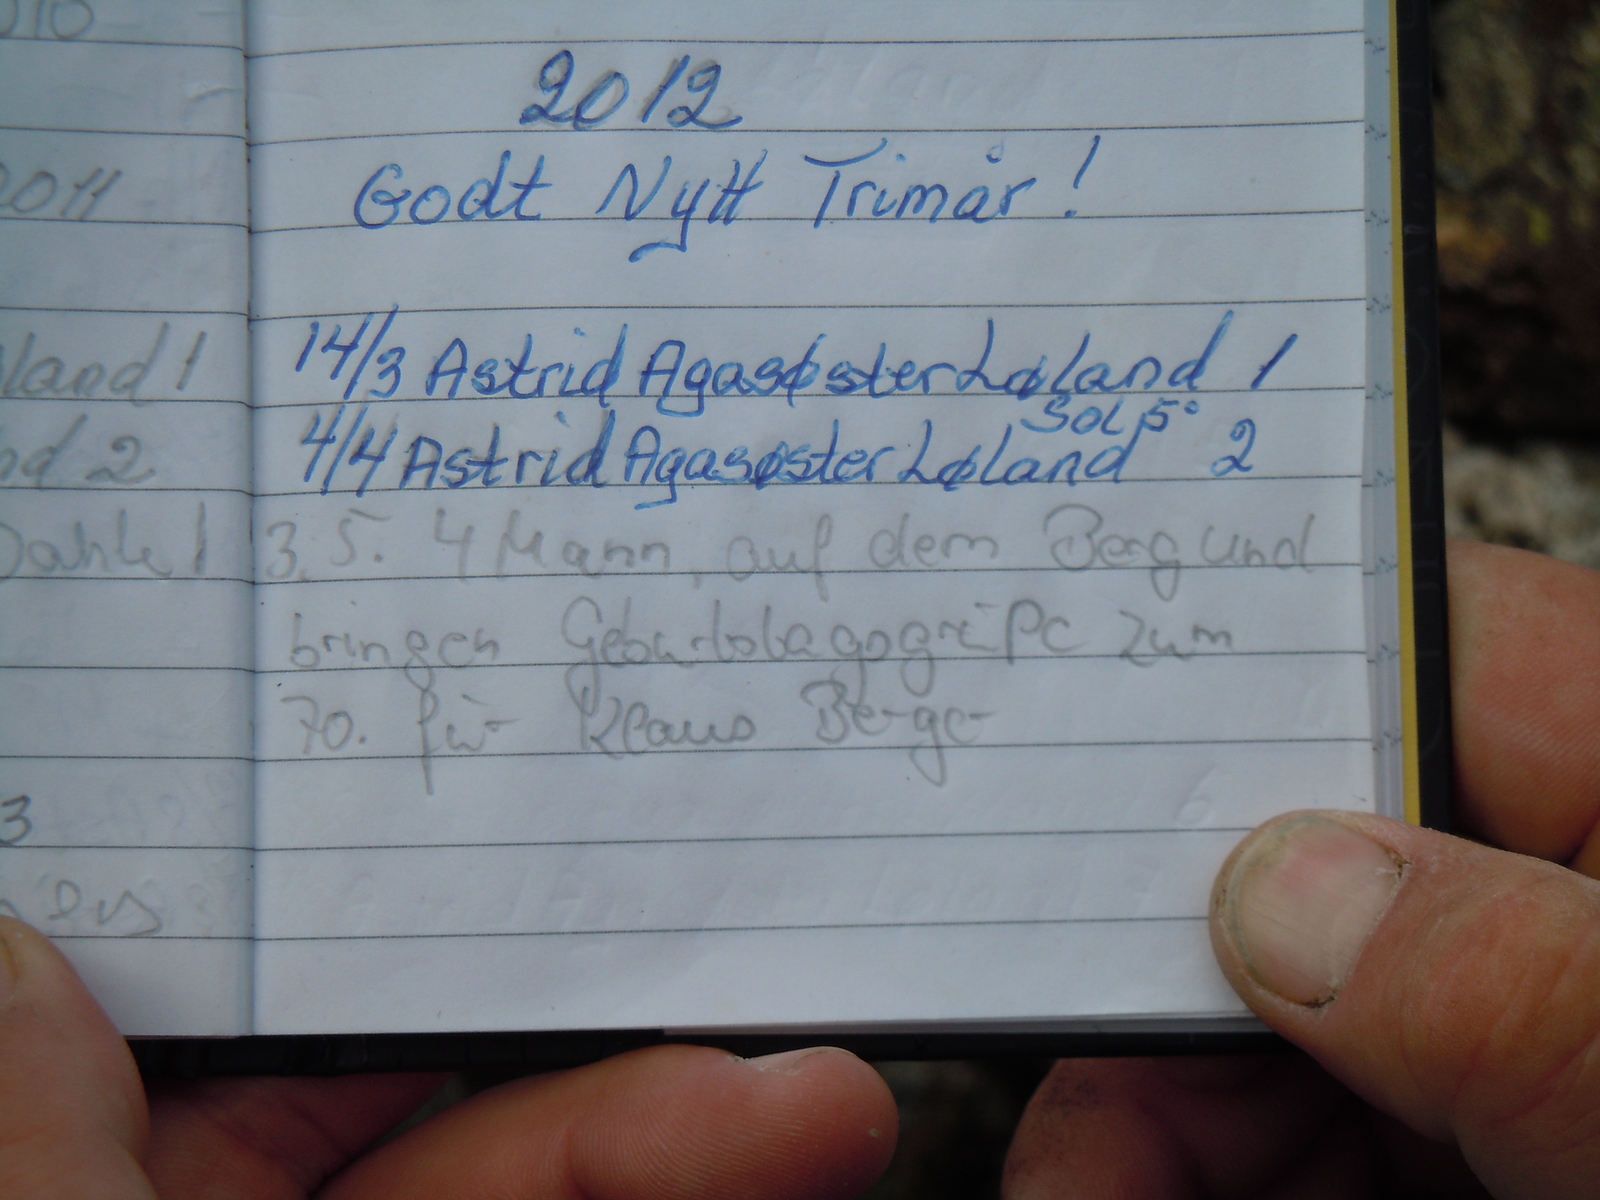 010
2011
land 1
nd 2
Dahle 1
3
2012
Godt Nytt Trimår!
14/3 Astrid Agasøster Løland 1
Sol 5°
4/4 Astrid Agasøster Løland 2
3.5. 4 Mann, auf dem Berg und
bringen Geburtstagsgrüße zum
70. für Klaus Berger